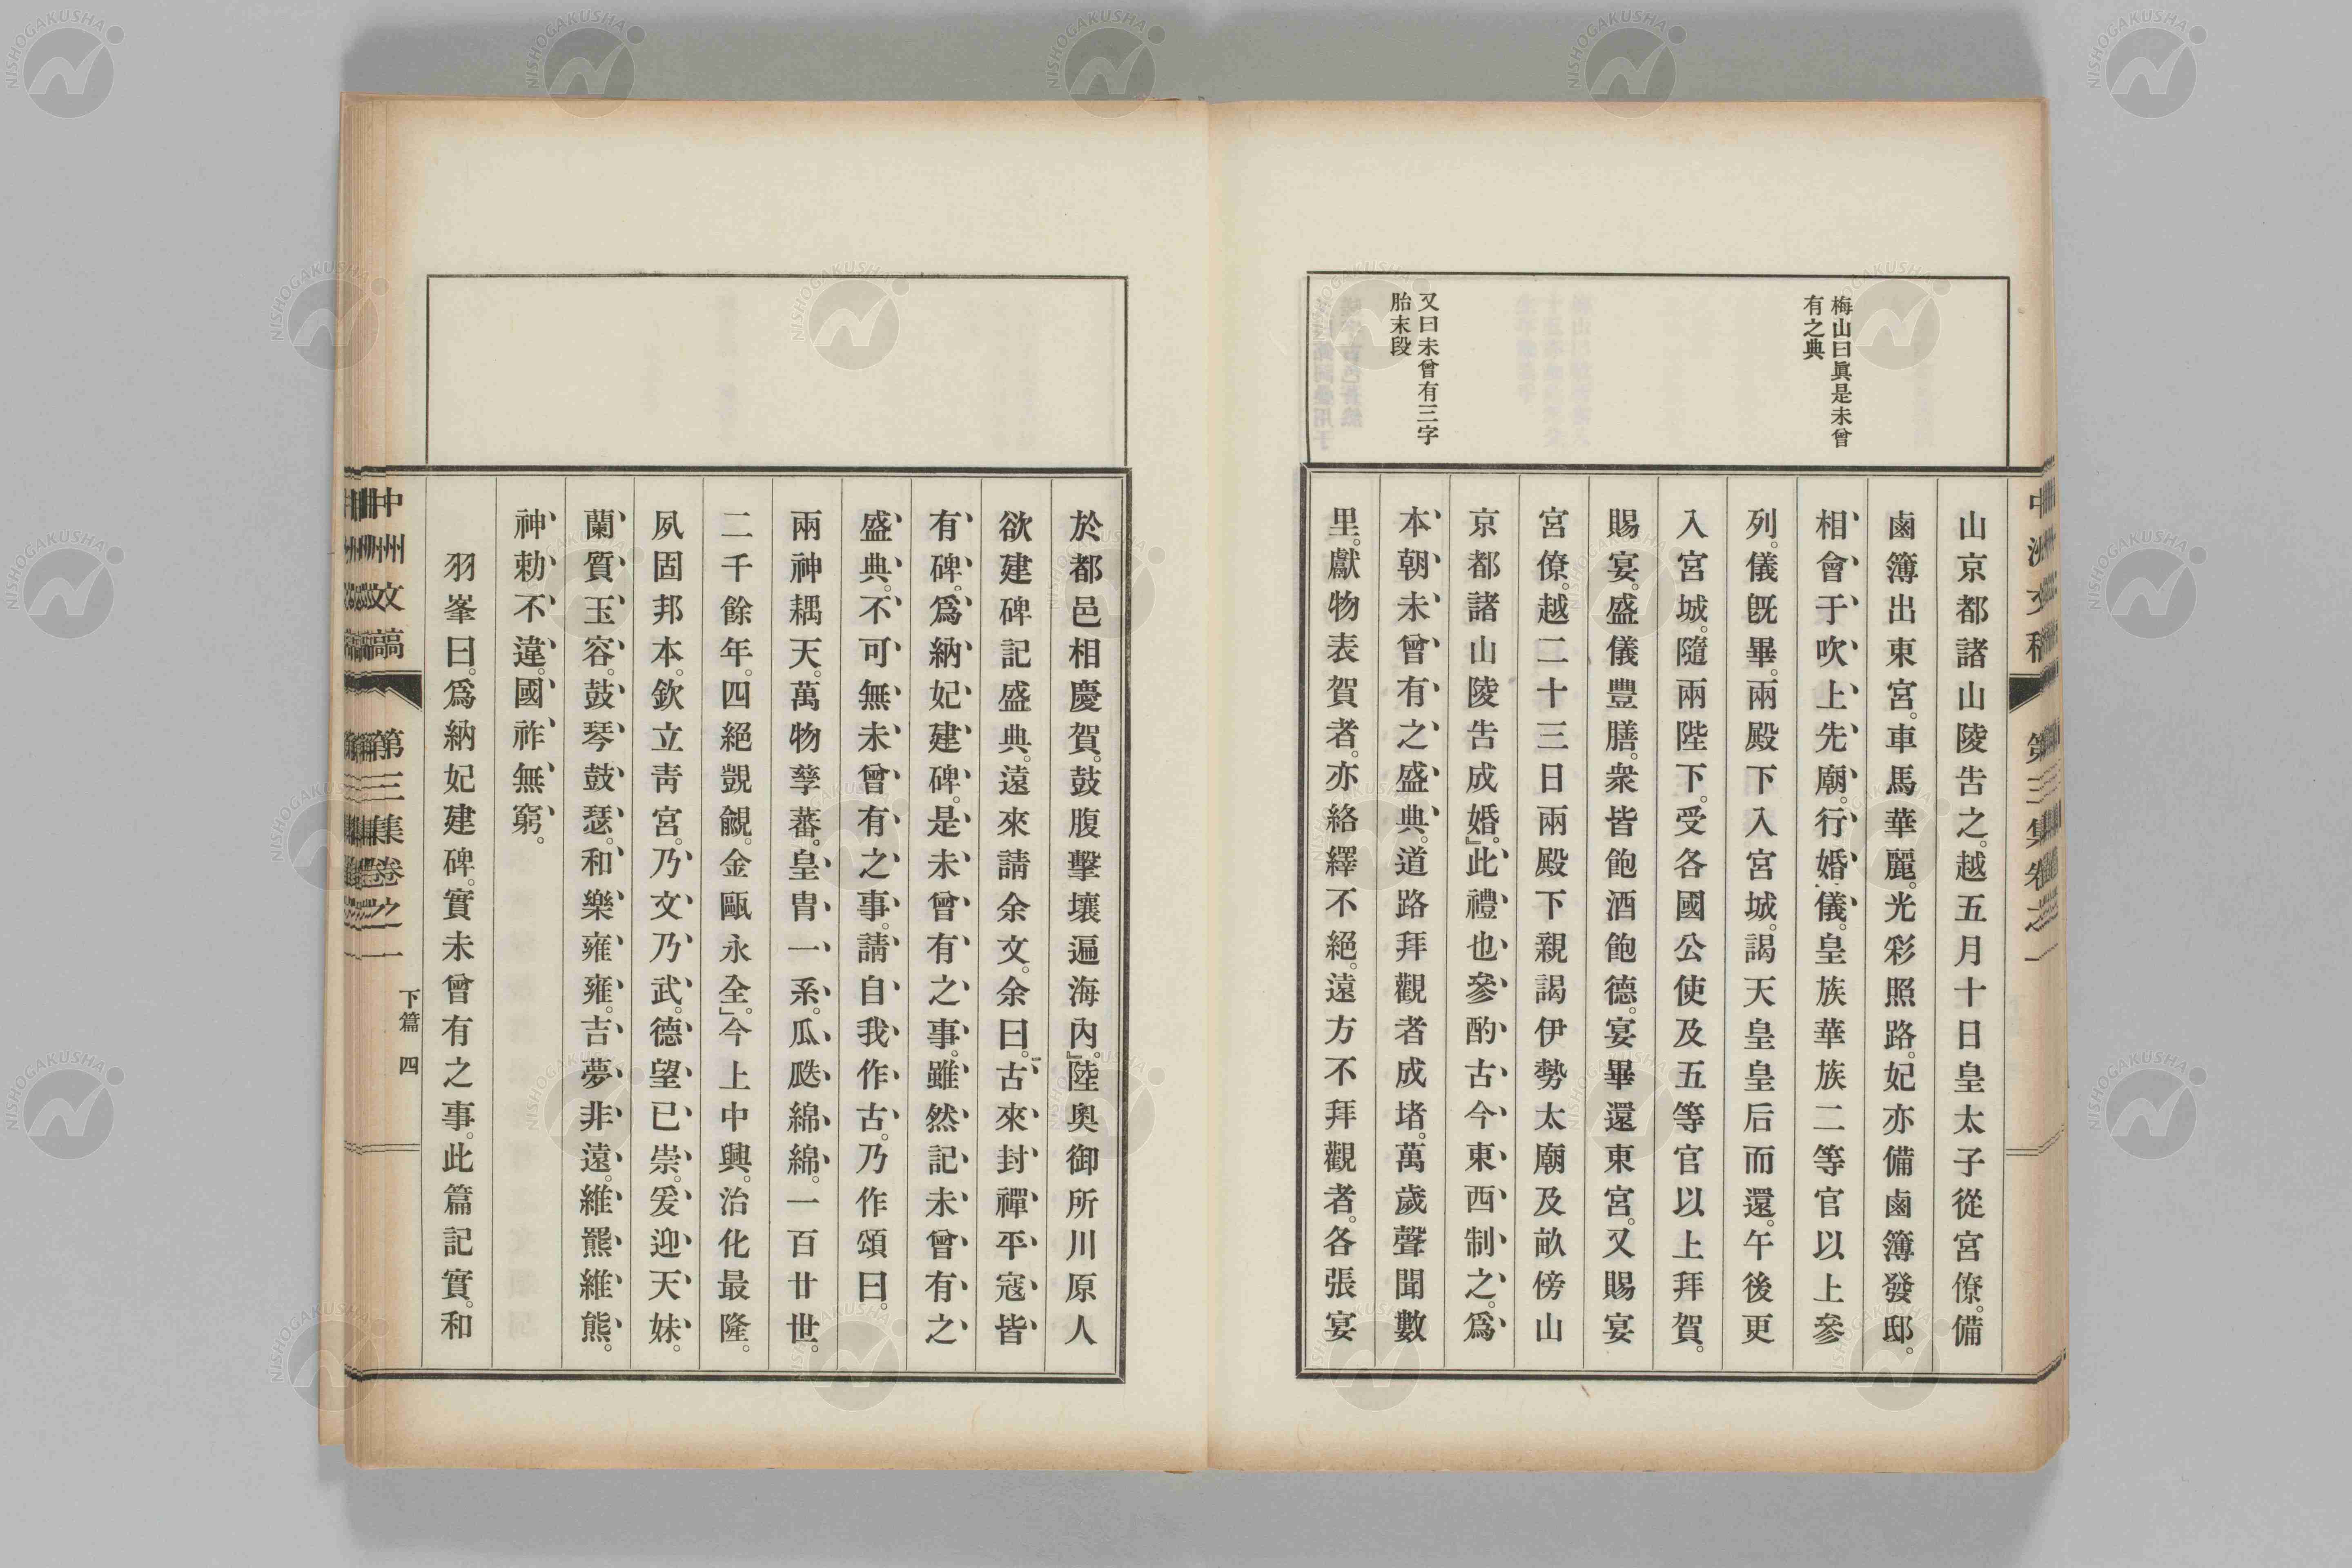 梅山曰眞是未曾
有之典
又曰未曾有三字
胎末段
山京都諸山陵告之。越五月十日皇太子從宮僚。備
鹵簿出東宮。車馬華麗。光彩照路。妃亦備鹵簿發邸。
相會于吹上先廟。行婚儀。皇族華族二等官以上參
列。儀旣畢。兩殿下入宮城。謁天皇皇后而還。午後更
入宮城。隨兩陛下。受各國公使及五等官以上拜賀。
賜宴。盛儀豐膳。衆皆飽酒飽德。宴畢還東宮。又賜宴
宮僚。越二十三日兩殿下親謁伊勢太廟及畝傍山
京都諸山陵告成婚。』此禮也參酌古今東西制之。爲
本朝未曾有之盛典。道路拜觀者成堵。萬歲聲聞數
里。獻物表賀者。亦絡繹不絕。遠方不拜觀者。各張宴
於都邑相慶賀。鼓腹擊壤遍海內。』陸奧御所川原人
欲建碑記盛典。遠來請余文。余曰。古來封禪平寇皆
有碑。爲納妃建碑。是未曾有之事。雖然記未曾有之
盛典。不可無未曾有之事。請自我作古。乃作頌曰。
兩神耦天。萬物孳蕃。皇冑一系。瓜瓞綿綿。一百廿世。
二千餘年。四絕覬覦。金甌永全。」今上中興。治化最隆。
夙固邦本。欽立靑宮。乃文乃武。德望已崇。爰迎天妹。
蘭質玉容。鼓琴鼓瑟。和樂雍雍。吉夢非遠。維羆維熊。
神勅不違。國祚無窮。
羽峯曰。爲納妃建碑。實未曾有之事。此篇記實。和
中州文稿
第三集卷之一
下篇 四